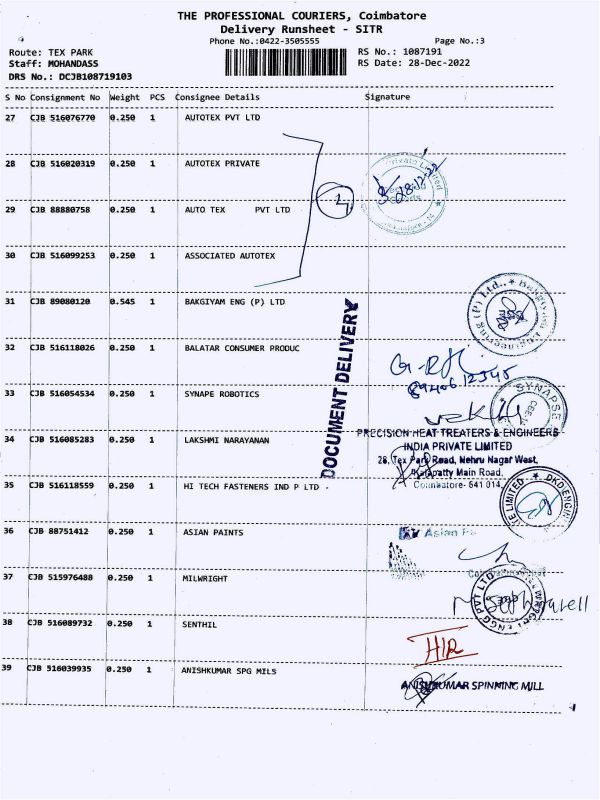 THE PROFESSIONAL COURIERS, Coimbatore
Delivery Runsheet - SITR
Phone No.:0422-3505555 Page No.:3
Route: TEX PARK RS No.: 1087191
Staff: MOHANDASS RS Date: 28-Dec-2022
DRS No.: DCJB108719103
S No Consignment No Weight PCS Consignee Details Signature
27 CJB 516076770 0.250 1 AUTOTEX PVT LTD
28 CJB 516020319 0.250 1 AUTOTEX PRIVATE
29 CJB 88880758 0.250 1 AUTO TEX PVT LTD
30 CJB 516099253 0.250 1 ASSOCIATED AUTOTEX
31 CJB 89080120 0.545 1 BAKGIYAM ENG (P) LTD
32 CJB 516118026 0.250 1 BALATAR CONSUMER PRODUC
33 CJB 516054534 0.250 1 SYNAPE ROBOTICS
34 CJB 516085283 0.250 1 LAKSHMI NARAYANAN
35 CJB 516118559 0.250 1 HI TECH FASTENERS IND P LTD
36 CJB 88751412 0.250 1 ASIAN PAINTS
37 CJB 515976488 0.250 1 MILWRIGHT
38 CJB 516089732 0.250 1 SENTHIL
39 CJB 516039935 0.250 1 ANISHKUMAR SPG MILS
DOCUMENT DELIVERY
Private Limited
(P) Ltd.,
8940612345
SYNAPSE
PRECISION HEAT TREATERS & ENGINEERS
INDIA PRIVATE LIMITED
28, Tex Park Road, Nehru Nagar West,
Kalapatty Main Road,
Coimbatore- 641 014
Asian
ENGG PVT LTD
H/R
ANISHKUMAR SPINNING MILL